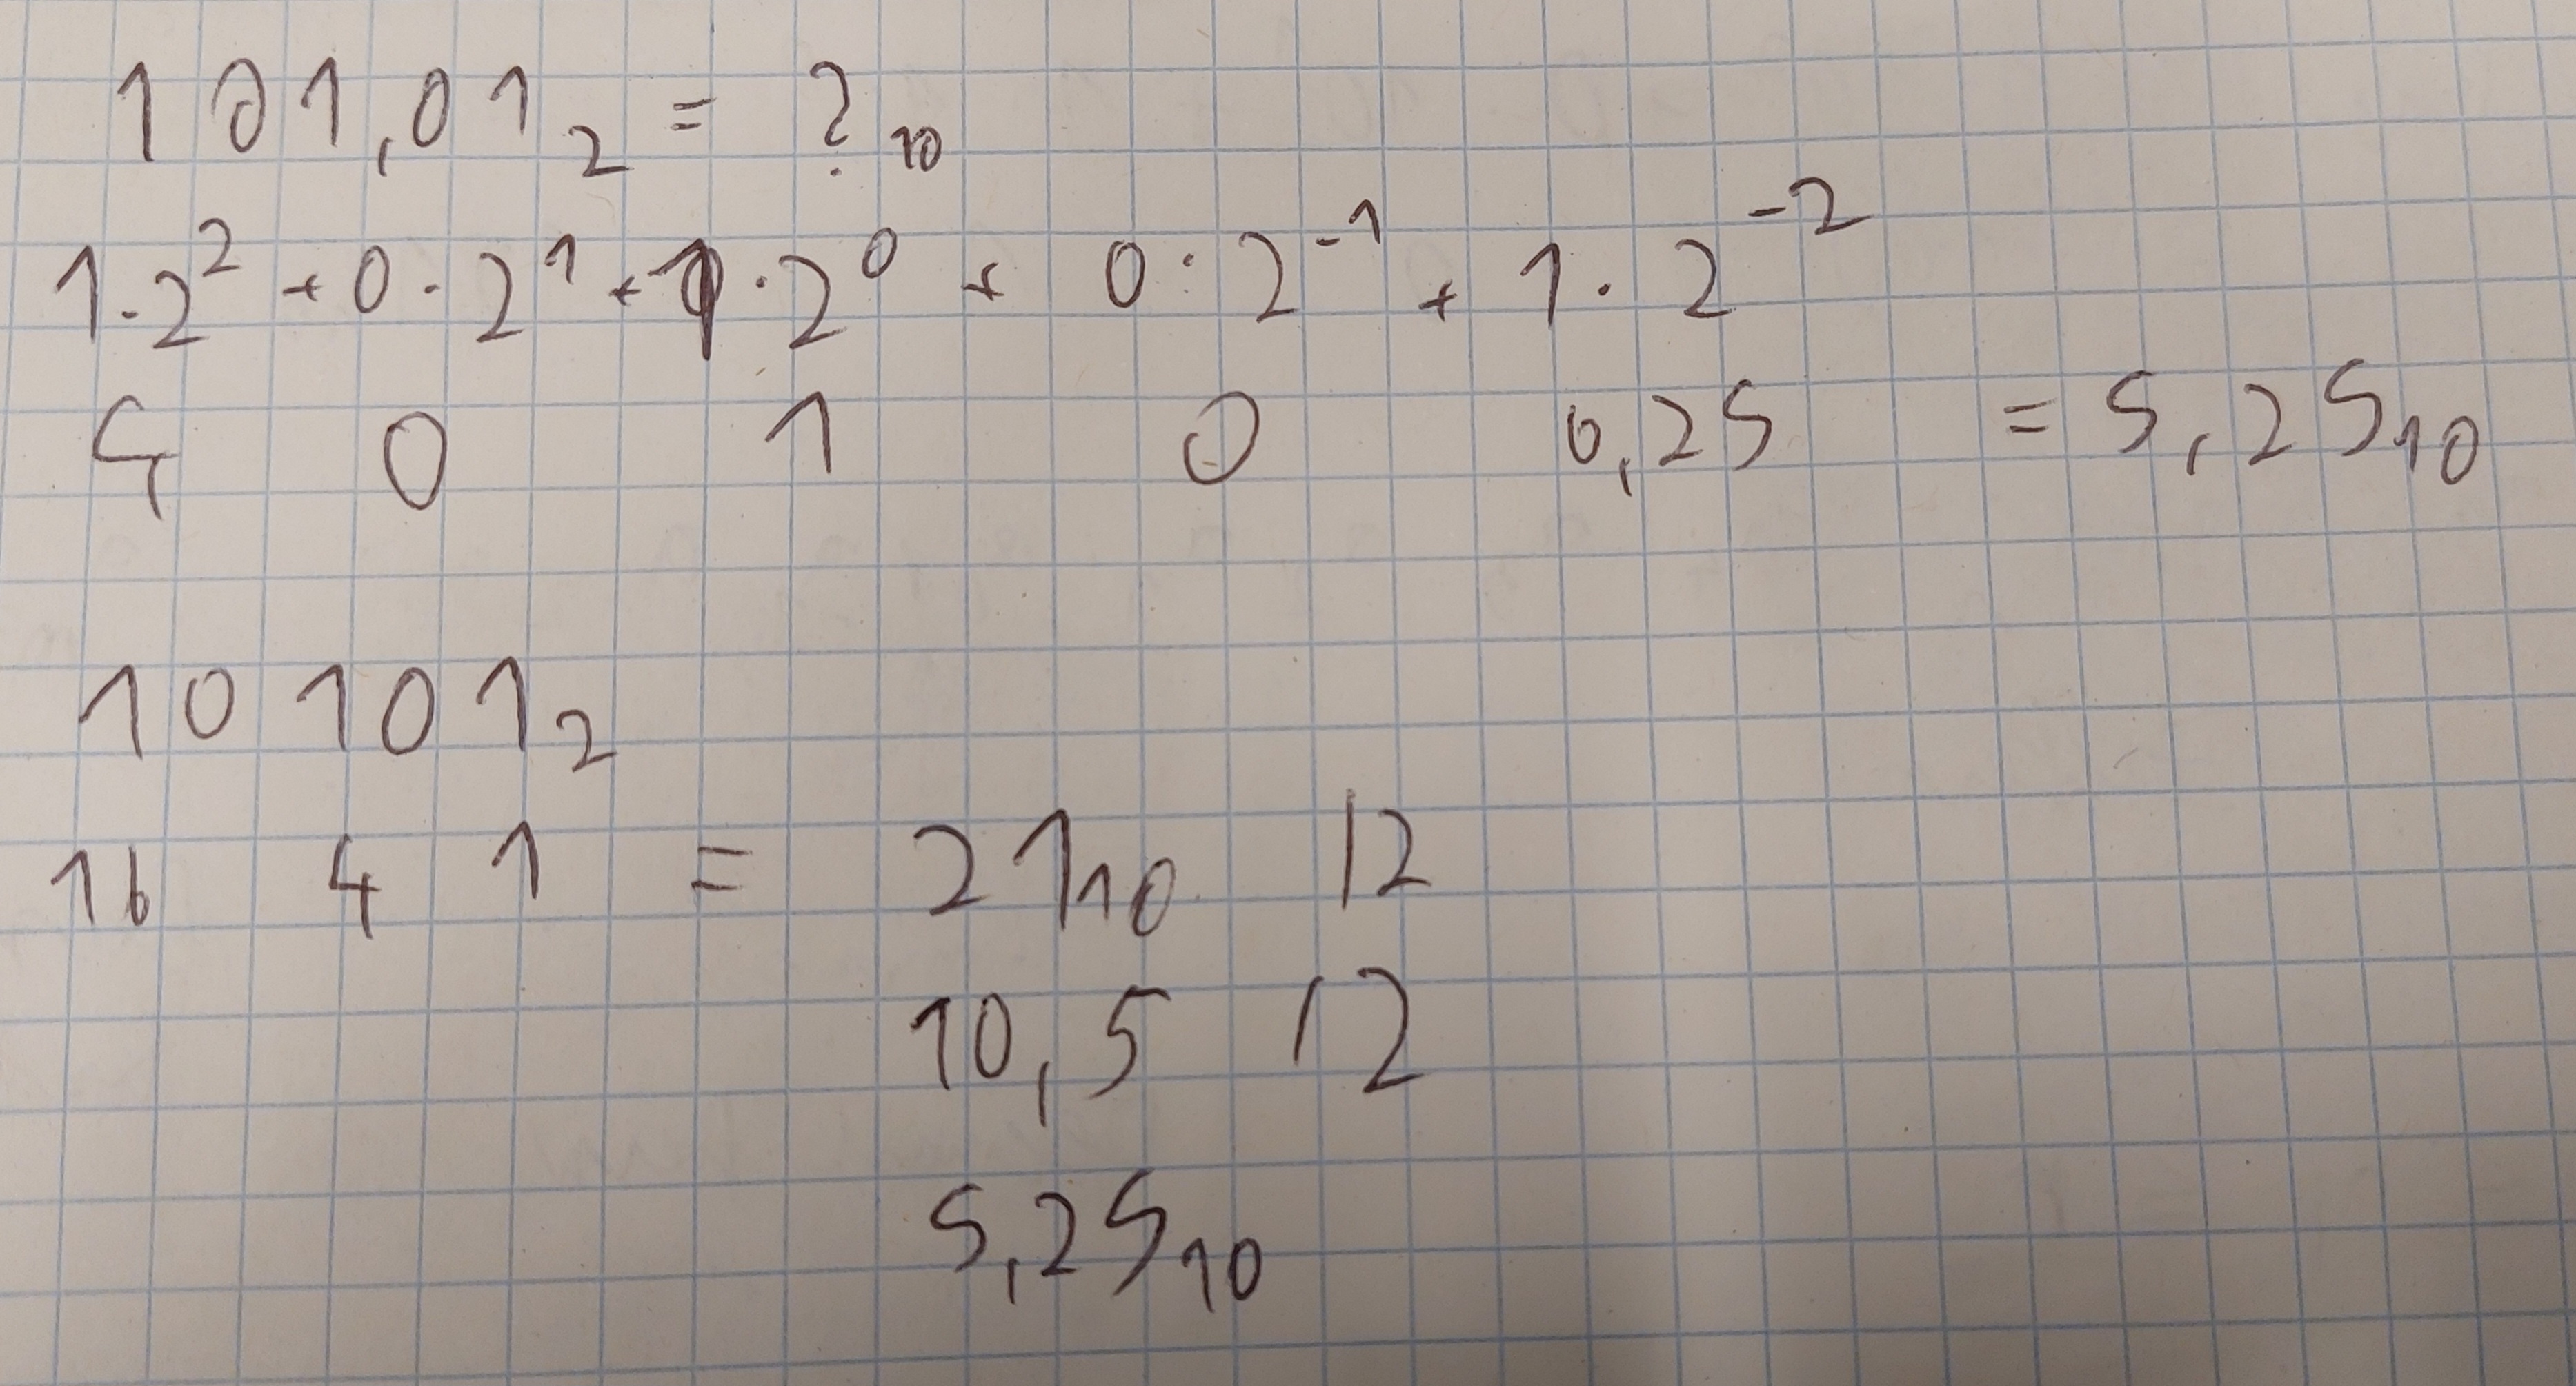 101,01₂ = ?₁₀
1·2² + 0·2¹ + 1·2⁰ + 0·2⁻¹ + 1·2⁻²
4 0 1 0 0,25 = 5,25₁₀
10101₂
16 4 1 = 21₁₀ |2
10,5 |2
5,25₁₀